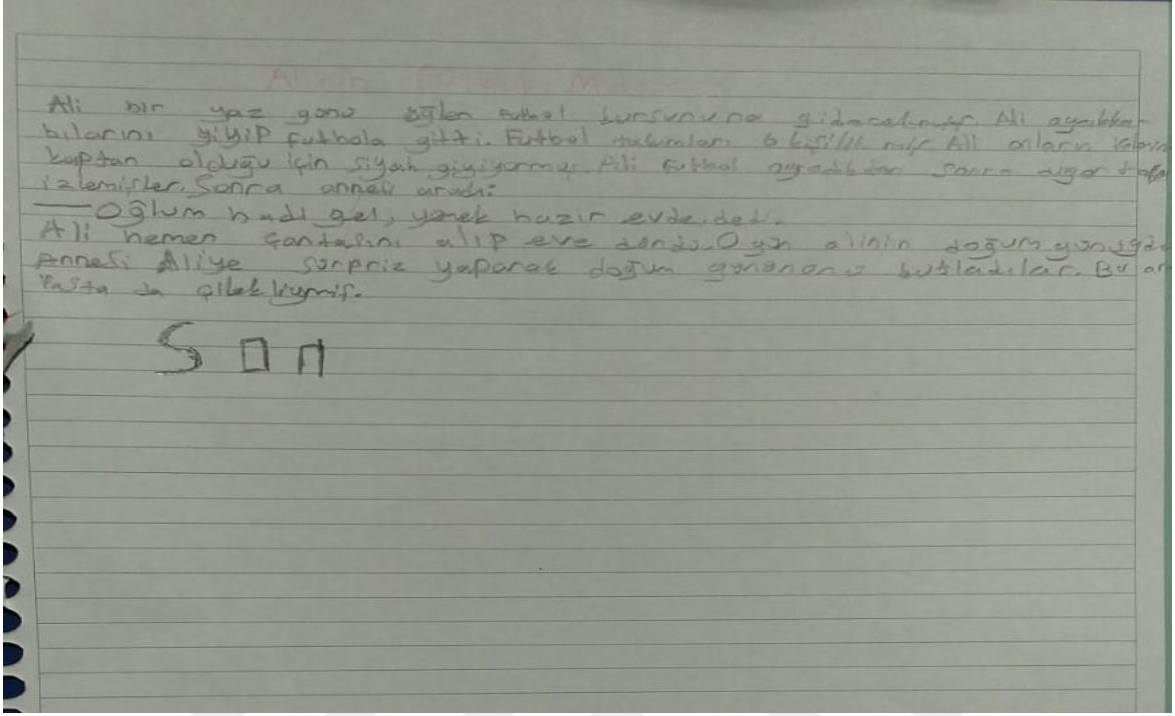 Ali bir yaz günü öğlen futbol kursununa gidecekmiş. Ali ayakka
bılarını giyip futbola gitti. Futbol takımları 6 kişilik miş Ali onların
kaptan olduğu için siyah giyiyormuş. Ali futbol oynadıktan sonra diğer
izlemişler. Sonra annesi aradı:
— Oğlum hadi gel, yemek hazır evde. dedi.
Ali hemen çantasını alıp eve döndü. O gün alinin doğum günüydü
Annesi Aliye sürpriz yaparak doğum gününü kutladılar. Bu ar
Pasta da çilekliymiş.
Son